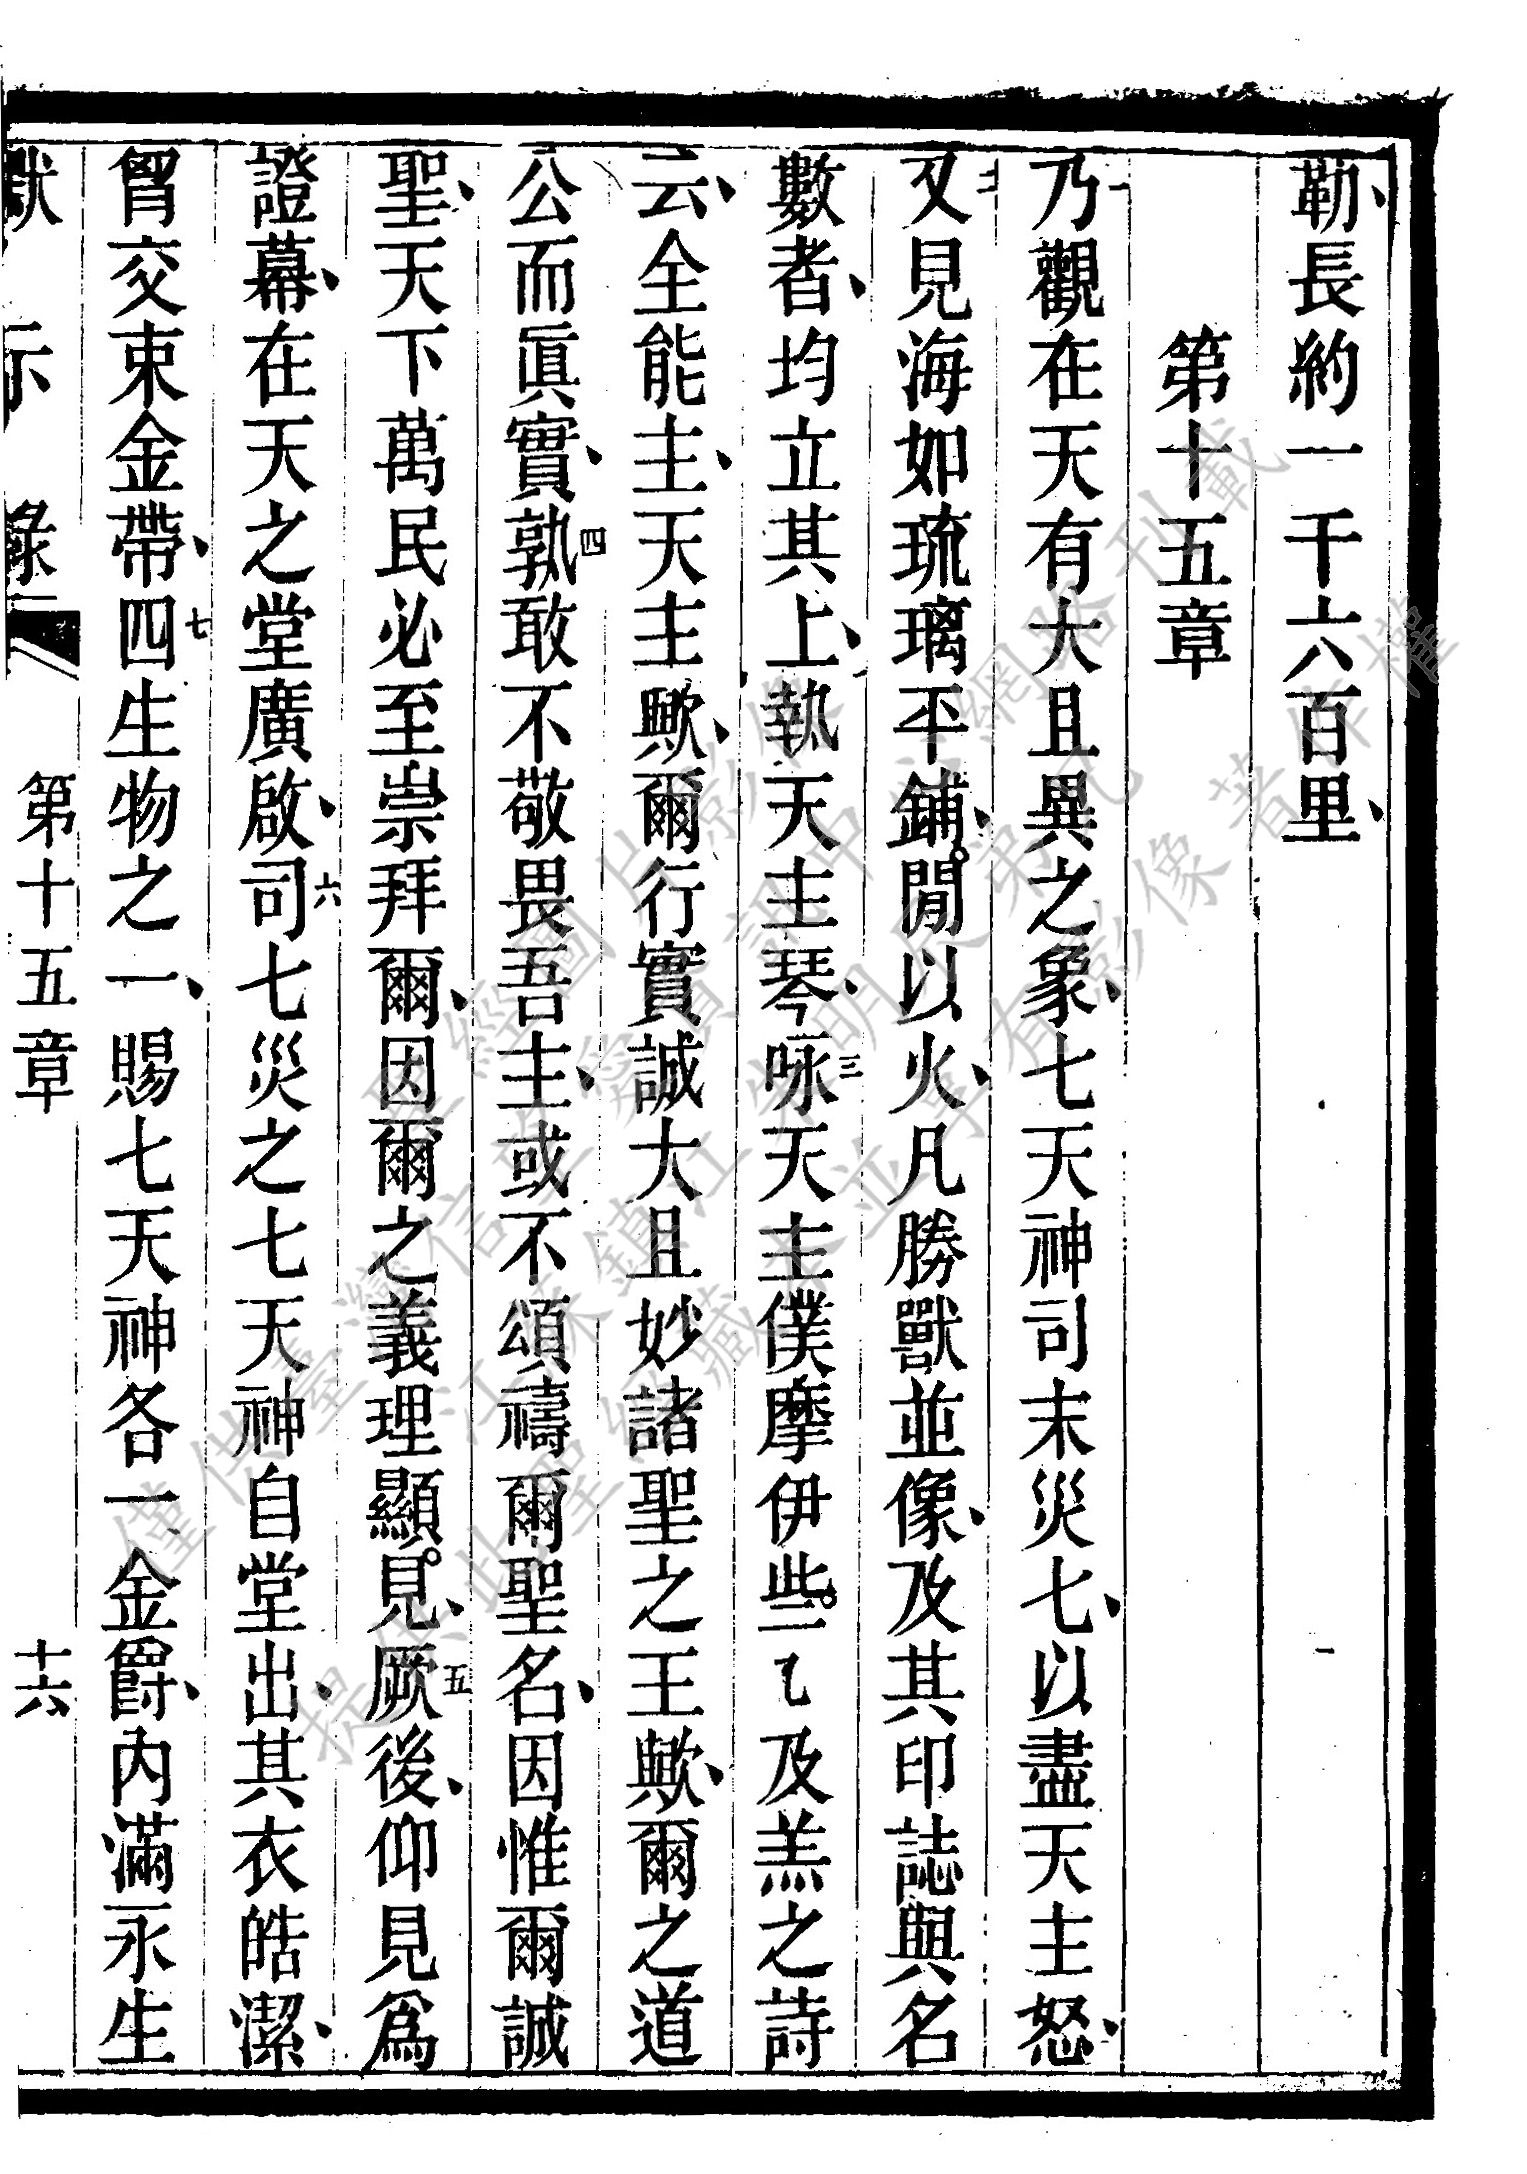 勒、長約一千六百里、
第十五章
一乃觀在天有大且異之象、七天神司末災七、以盡天主怒、
二又見海如琉璃平鋪、閒。以火、凡勝獸並像、及其印誌與名
數者、均立其上、執天主琴、三咏天主僕摩伊些。乀及羔之詩
云、全能主、天主歟、爾行實誠大且妙諸聖之王歟、爾之道
公而眞實、四孰敢不敬畏吾主、或不頌禱爾聖名、因惟爾誠
聖、天下萬民必至崇拜爾、因爾之義理顯見。、五厥後、仰見爲
證幕、在天之堂廣啟、六司七災之七天神自堂出、其衣皓潔、
胷交束金帶、七四生物之一、賜七天神各一金爵、內滿永生
默示錄
第十五章
十六
僅供臺灣信望愛資訊中心網路刊載
提供此聖經藏本並享有影像著作權